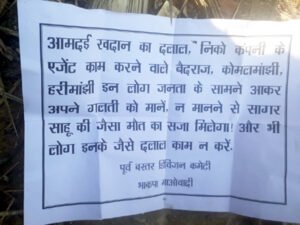 आमदई खदान का दलाल, "निको कंपनी के
एजेंट काम करने वाले बैदराज, कोमलमांझी,
हरीमांझी इन लोग जनता के सामने आकर
अपने गलती को मानें, न मानने से सागर
साहू की जैसा मौत का सजा मिलेगा! और भी
लोग इनके जैसे दलाल काम न करें.
पूर्व बस्तर डिविजन कमेटी
भाकपा माओवादी